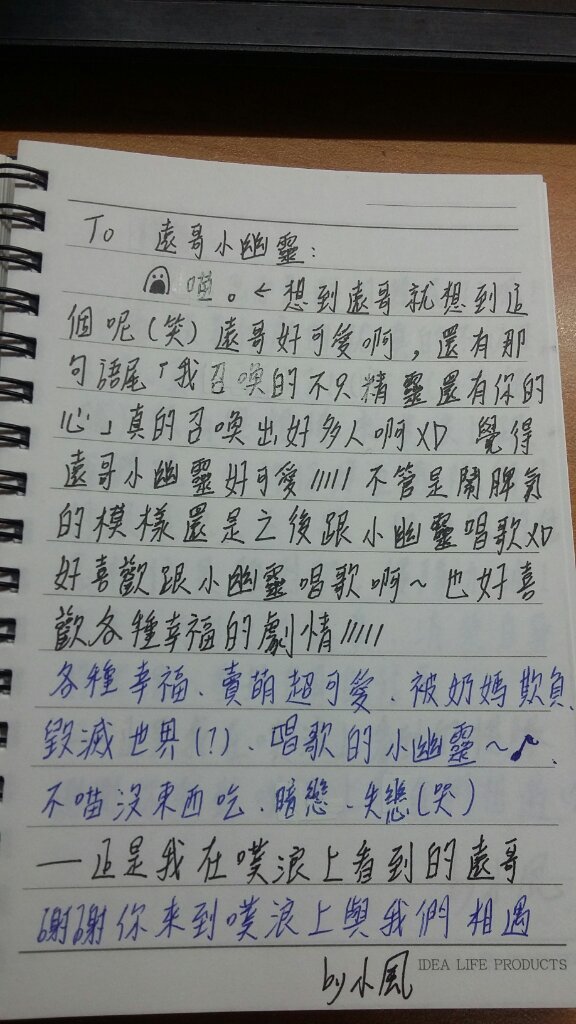 To 遠哥小幽靈:
喵。←想到遠哥就想到這
個呢(笑)遠哥好可愛啊,還有那
句語尾「我召喚的不只精靈還有你的
心」真的召喚出好多人啊XD 覺得
遠哥小幽靈好可愛///// 不管是鬧脾氣
的模樣還是之後跟小幽靈唱歌XD
好喜歡跟小幽靈唱歌啊~也好喜
歡各種幸福的劇情/////
各種幸福、賣萌超可愛、被奶媽欺負、
毀滅世界(?)、唱歌的小幽靈~♪、
不喵沒東西吃、暗戀、失戀(哭)
—這是我在噗浪上看到的遠哥
謝謝你來到噗浪上與我們相遇
by小風
IDEA LIFE PRODUCTS